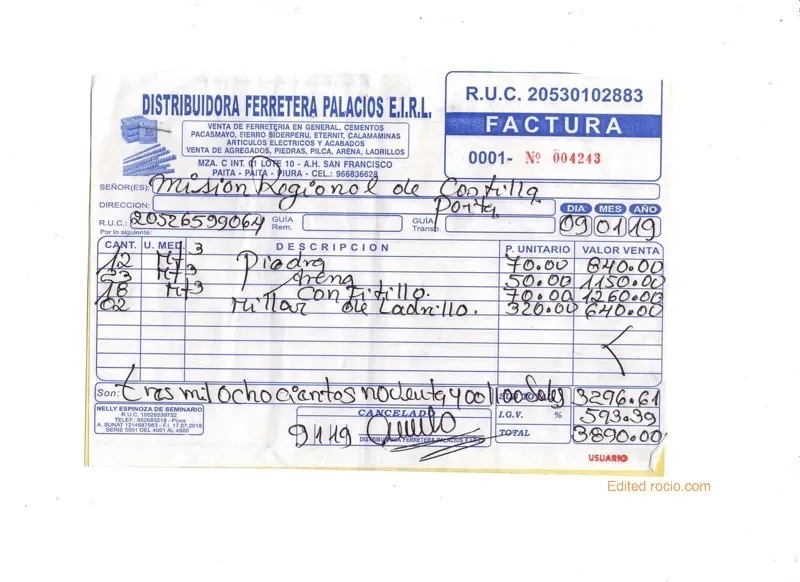 DISTRIBUIDORA FERRETERA PALACIOS E.I.R.L.
VENTA DE FERRETERIA EN GENERAL, CEMENTOS
PACASMAYO, FIERRO SIDERPERU, ETERNIT, CALAMAMINAS
ARTICULOS ELECTRICOS Y ACABADOS
VENTA DE AGREGADOS, PIEDRAS, PILCA, ARENA, LADRILLOS
MZA. C INT. 01 LOTE 10 - A.H. SAN FRANCISCO
PAITA - PAITA - PIURA - CEL.: 966836628
R.U.C. 20530102883
FACTURA
0001- Nº 004243
SEÑOR(ES): Mision Regional de Castilla
DIRECCION: Paita
DIA MES AÑO
R.U.C.: 20526599064 GUÍA Rem. GUÍA Transp. 09 01 19
Por lo siguiente:
CANT. U. MED. DESCRIPCION P. UNITARIO VALOR VENTA
12 Mt3 Piedra 70.00 840.00
23 Mt3 Arena 50.00 1150.00
18 Mt3 Confitillo. 70.00 1260.00
02 Millar de Ladrillo. 320.00 640.00
Son: tres mil ochocientos nodenta y 00/100 Soles 3296.61
I.G.V. % 593.39
TOTAL 3890.00
NELLY ESPINOZA DE SEMINARIO
R.U.C. 10026539752
TELEF: 952665218 - Piura
A. SUNAT 1214687083 - F.I. 17.07.2018
SERIE 0001 DEL 4001 AL 4500
CANCELADO
9/1/19
DISTRIBUIDORA FERRETERA PALACIOS E.I.R.L.
USUARIO
Edited rocio.com